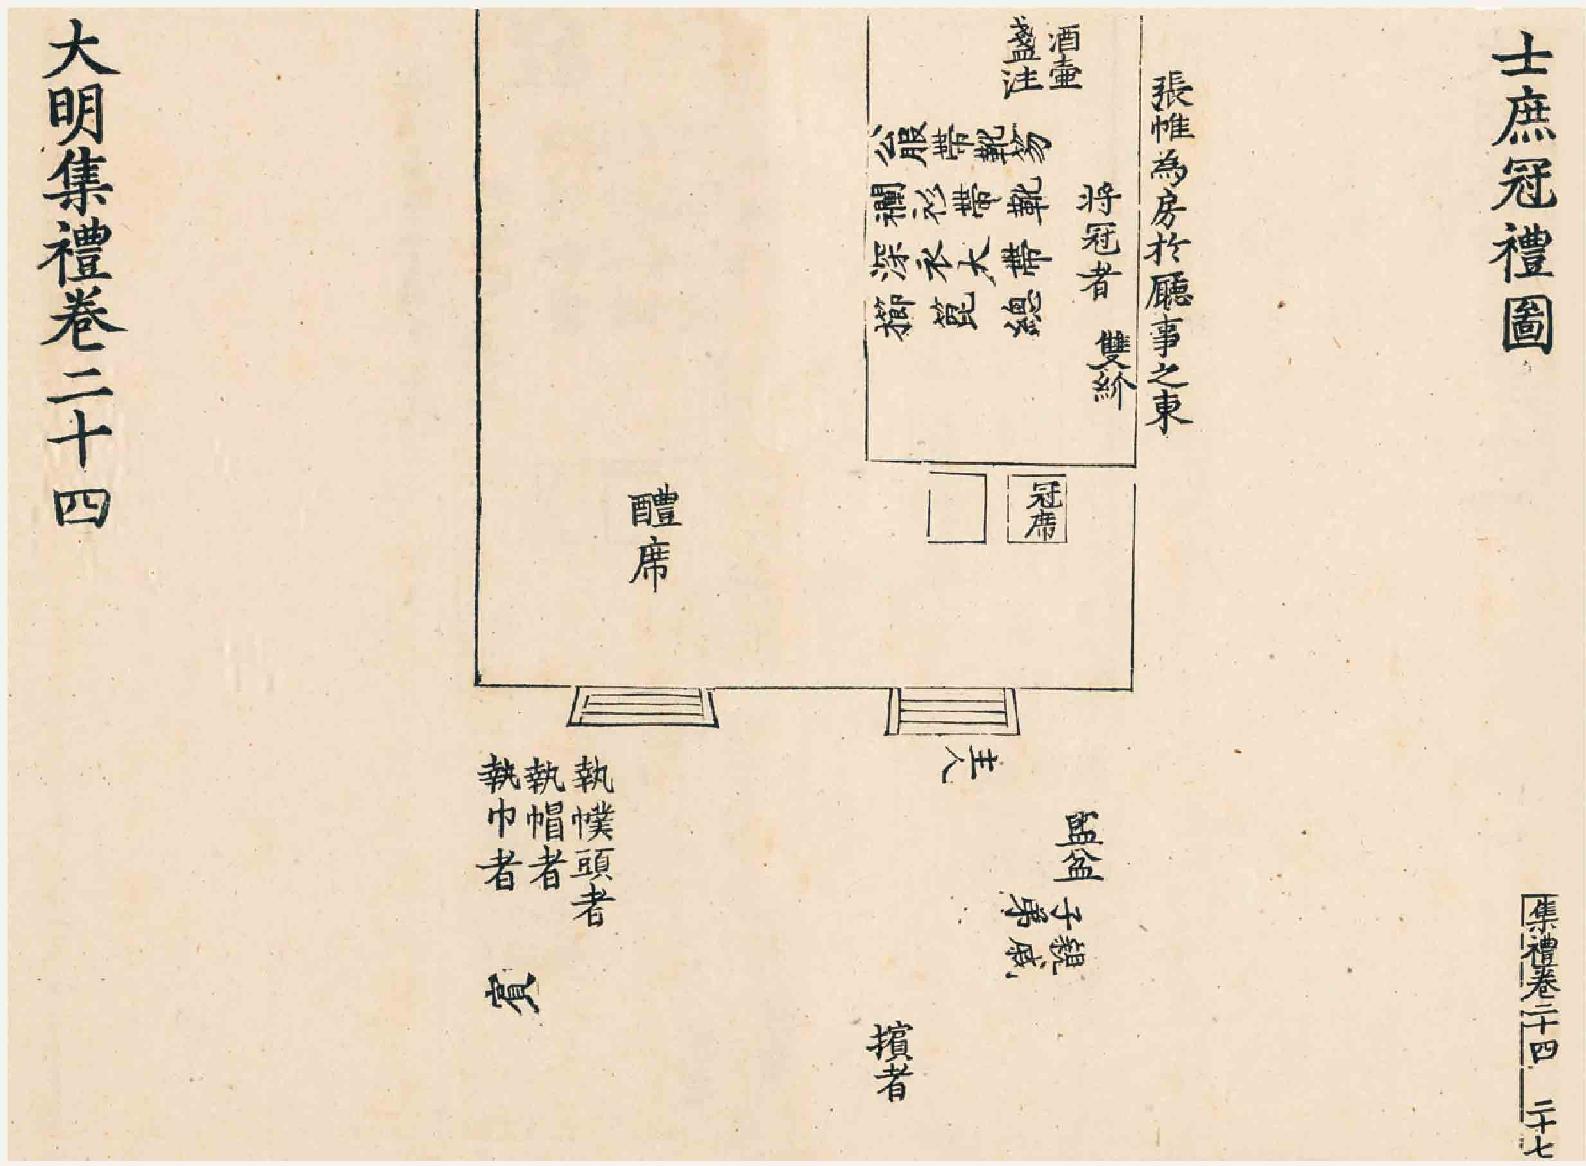 士庶冠禮圖
張帷為房於廳事之東
酒壺
盞注
公服帶靴笏
襴衫帶靴
深衣大帶
櫛㲋總
將冠者
雙紒
冠席
醴席
主人
盥盆
親戚
子弟
執幞頭者
執帽者
執巾者
賓
擯者
大明集禮卷二十四
集禮卷二十四 二十七